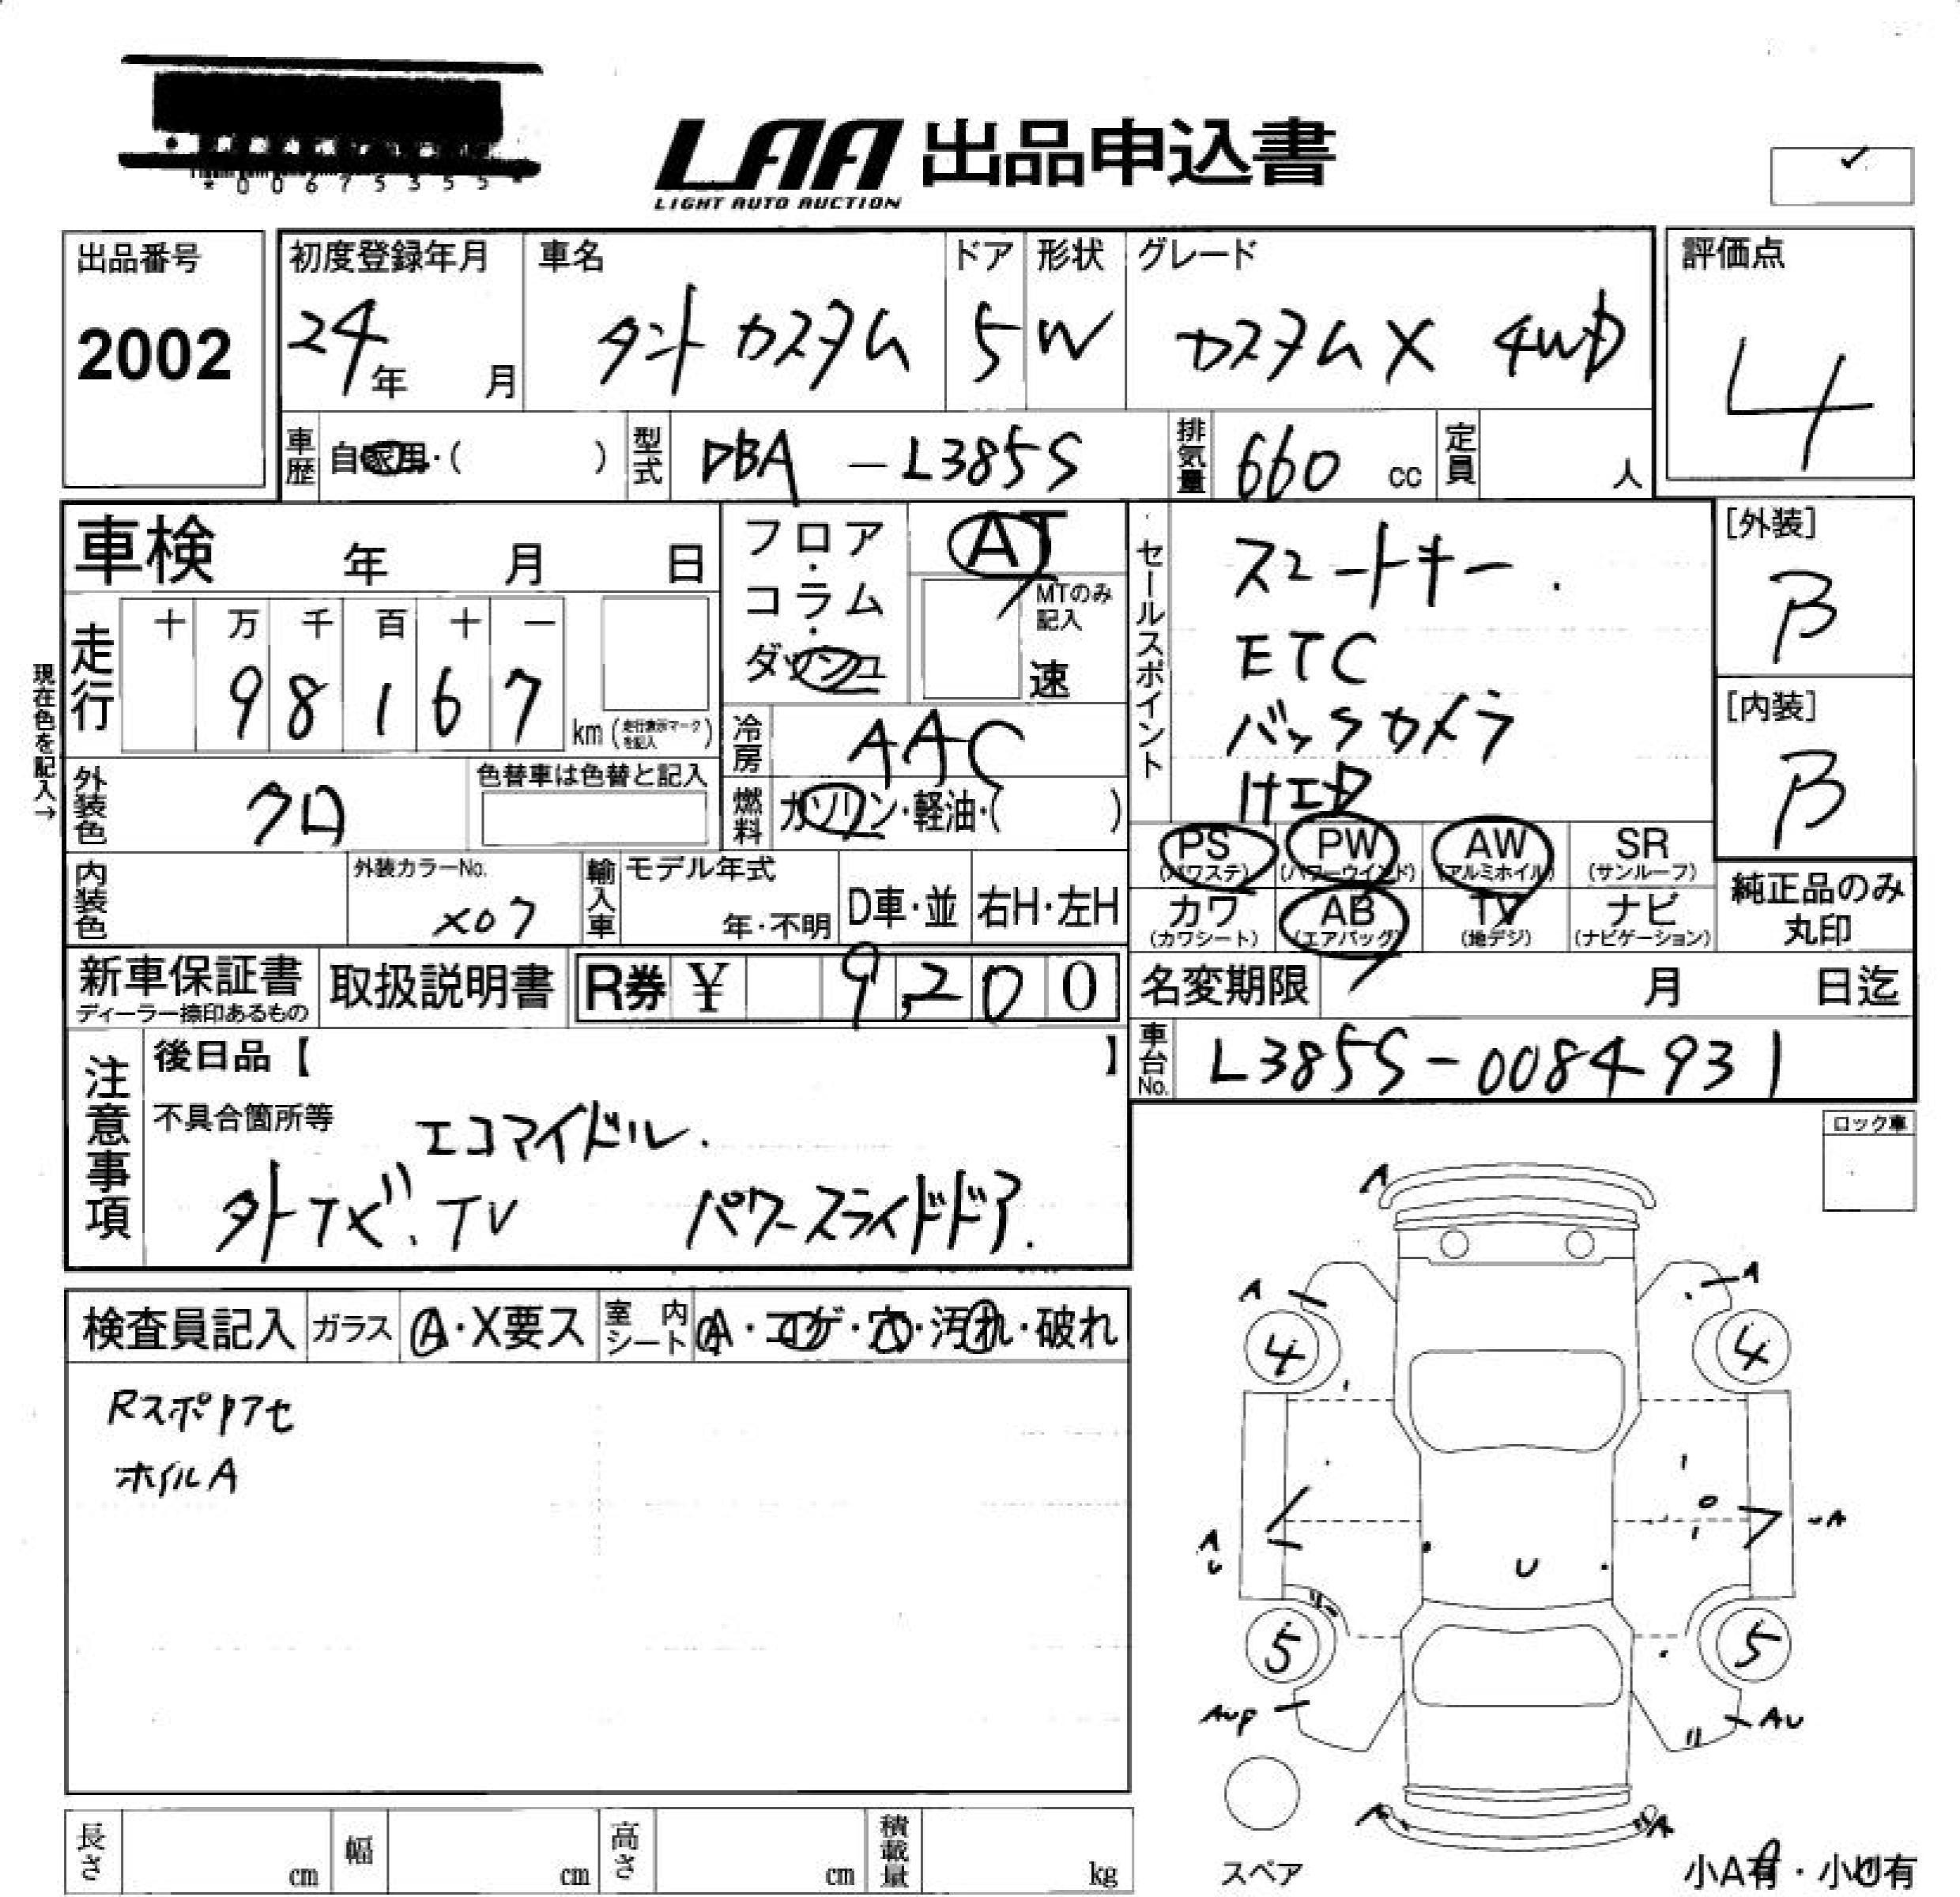 *00675355*
LAA 出品申込書
LIGHT AUTO AUCTION
出品番号
2002
初度登録年月
24年 月
車名
タント カスタム
ドア
5
形状
W
グレード
カスタムX 4WD
評価点
4
車歴
自家用・( )
型式
DBA-L385S
排気量
660 cc
定員
人
車検 年 月 日
走行
十 万 千 百 十 一
98167
km (走行表示マークを記入)
現在色を記入→
外装色
クロ
色替車は色替と記入
内装色
外装カラーNo.
X07
輸入車
モデル年式
年・不明
D車・並
右H・左H
フロア・コラム・ダッシュ
AT
MTのみ記入
速
冷房
AAC
燃料
ガソリン・軽油・( )
セールスポイント
スマートキー.
ETC
バックカメラ
HID
[外装]
B
[内装]
B
PS (パワステ)
PW (パワーウインド)
AW (アルミホイル)
SR (サンルーフ)
カワ (カワシート)
AB (エアバッグ)
TV (地デジ)
ナビ (ナビゲーション)
純正品のみ丸印
新車保証書
ディーラー捺印あるもの
取扱説明書
R券 ¥ 9,200
名変期限 月 日迄
車台No.
L385S-0084931
注意事項
後日品【 】
不具合箇所等
エコアイドル.
外ナビ.TV パワースライドドア.
ロック車
検査員記入
ガラス
A・X要ス
室内シート
A・コゲ・穴・汚れ・破れ
Rスポ
ホイルA
A
A
A
4
4
A
U
U
UA
5
5
AUP
AU
A
A
スペア
小A有・小U有
長さ cm
幅 cm
高さ cm
積載量 kg